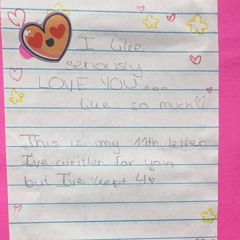 I like
seriously
LOVE YOU ...
like so much♡
This is my 11th letter
I've written for you,
but I've kept 4♡